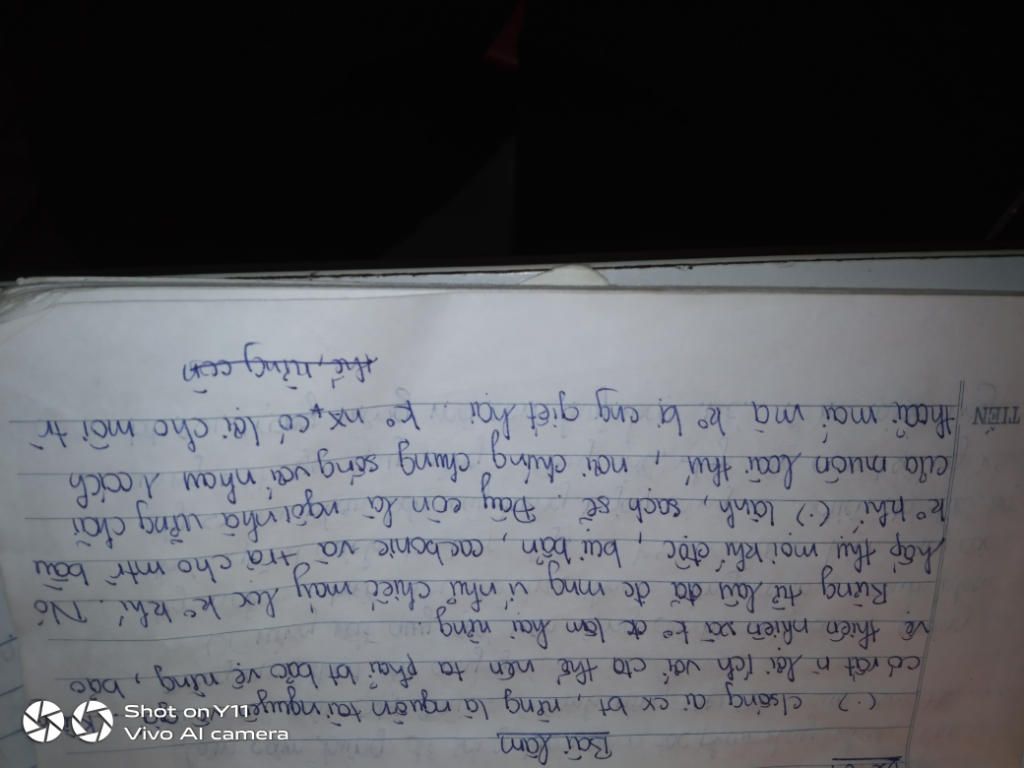 Bài làm
(.) c/sống ai cx bt rừng là nguồn tài nguyên vô giá
có rất n` lợi ích với cta thế nên ta phải bt bảo vệ rừng, bảo
vệ thiên nhiên và k° đc làm hại rừng.
Rừng từ lâu đã đc mng ví như chiếc máy lọc k° khí. Nó
hấp thụ mọi khí độc, bụi bẩn, cacbonic và trả cho mtr` bầu
k° khí (.) lành, sạch sẽ. Đây còn là ngôi nhà vững chãi
của muôn loài thú, nơi chúng chung sống với nhau 1 cách
thoải mái mà k° bị cng giết hại. k° nx, có lợi cho môi tr`
thế, rừng còn
TIÊN
Shot on Y11
Vivo AI camera